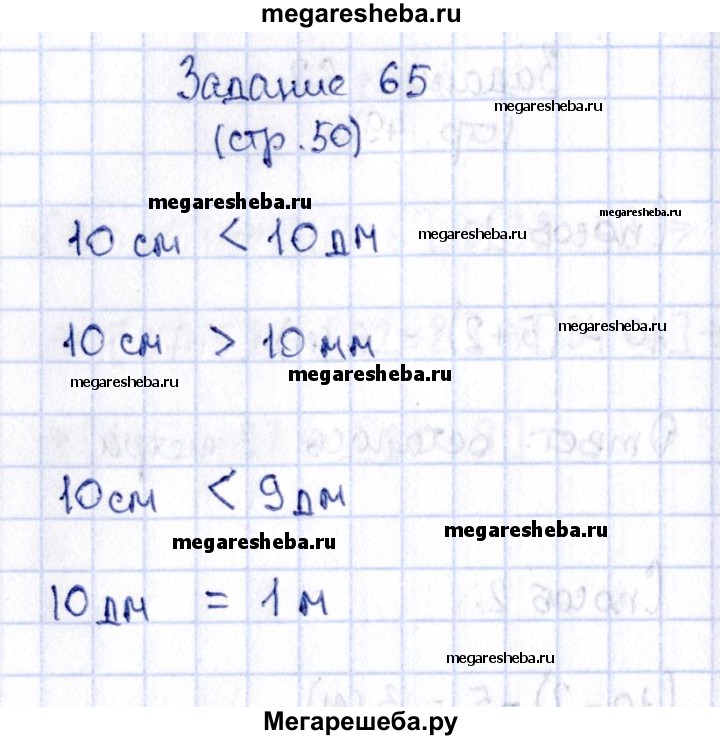 megaresheba.ru
Задание 65
megaresheba.ru
(стр. 50)
megaresheba.ru
megaresheba.ru
10 см < 10 дм
megaresheba.ru
10 см > 10 мм
megaresheba.ru
megaresheba.ru
megaresheba.ru
10 см < 9 дм
megaresheba.ru
megaresheba.ru
10 дм = 1 м
megaresheba.ru
Мегарешеба.ру